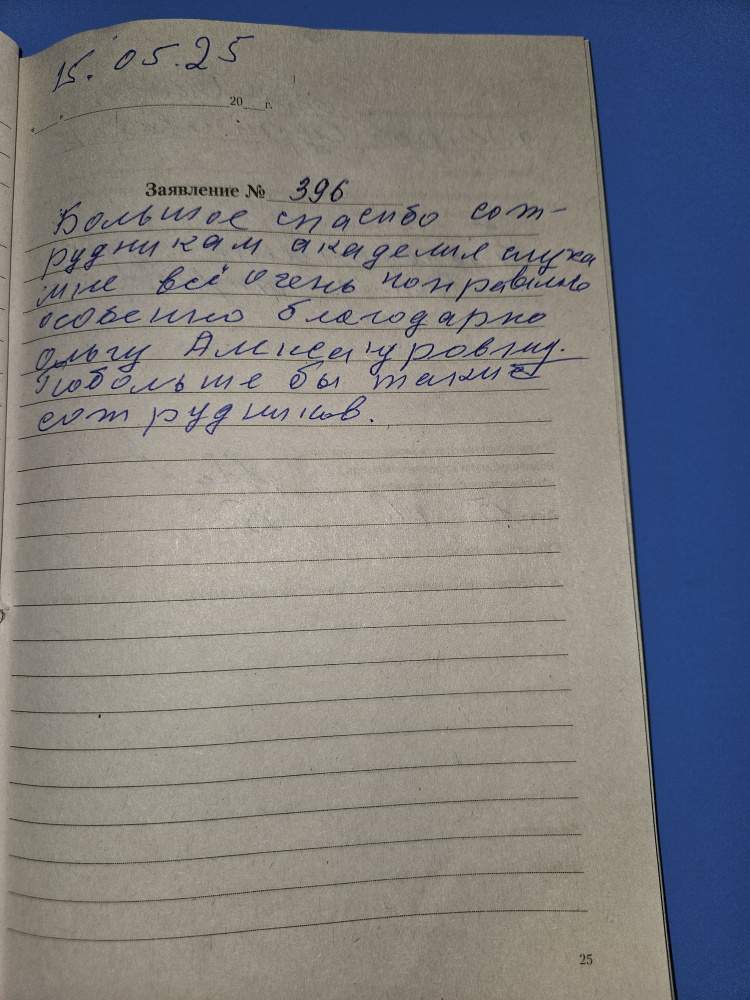 15.05.25
20 г.
Заявление № 396
Большое спасибо сот-
рудникам академия слуха
мне всё очень понравилось
особенно благодарно
ольгу
Побольше бы таких
сотрудников.
25